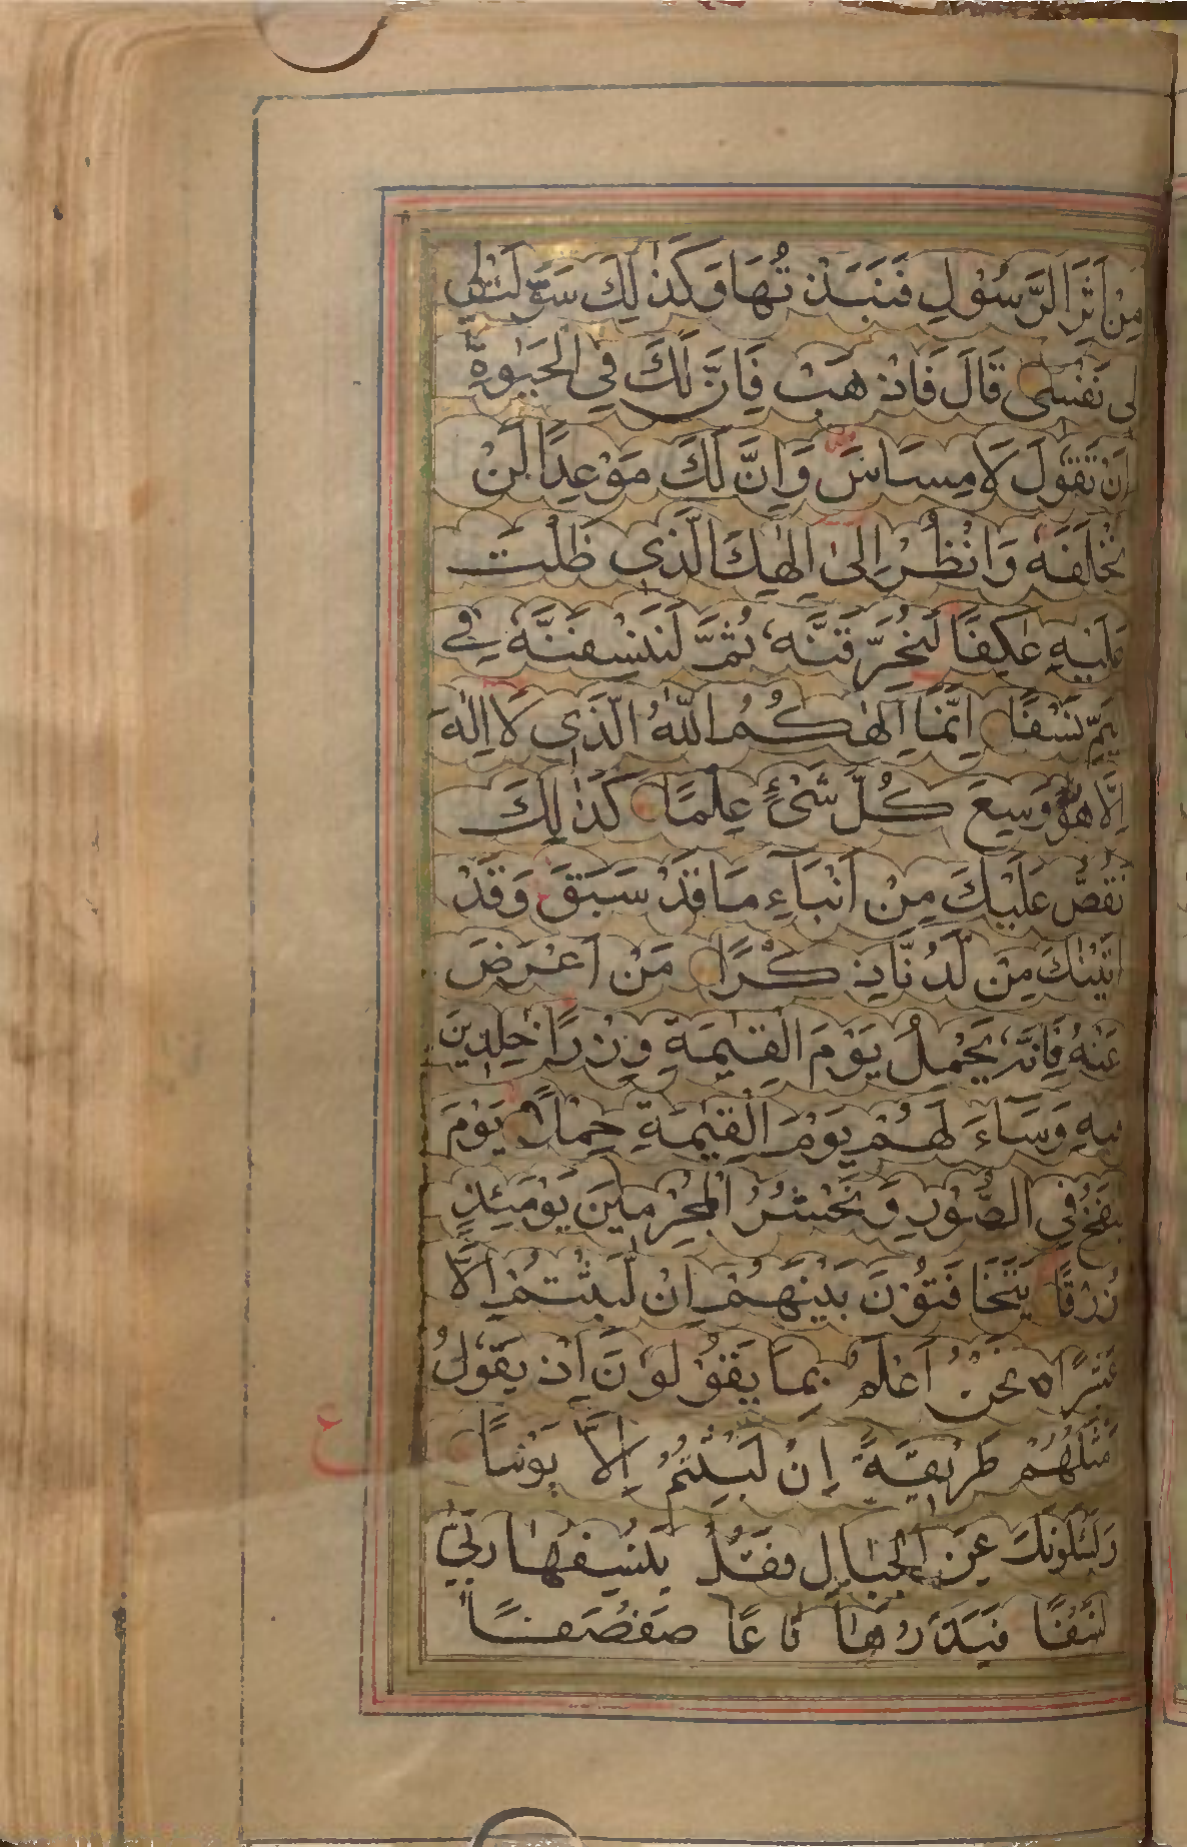 مِنْ اَثَرِ الرَّسُوْلِ فَنَبَذْتُهَا وَكَذٰلِكَ سَوَّلَتْ
لِی نَفْسِی قَالَ فَاذْهَبْ فَاِنَّ لَكَ فِی الْحَیٰوةِ
اَنْ تَقُوْلَ لَا مِسَاسَ وَاِنَّ لَكَ مَوْعِدًا لَنْ
تُخْلَفَهٗ وَانْظُرْ اِلیٰ اِلٰهِكَ الَّذِی ظَلْتَ
عَلَیْهِ عَاكِفًا لَنُحَرِّقَنَّهٗ ثُمَّ لَنَنْسِفَنَّهٗ فِی
الْیَمِّ نَسْفًا اِنَّمَا اِلٰهُكُمُ اللّٰهُ الَّذِی لَا اِلٰهَ
اِلَّا هُوَ وَسِعَ كُلَّ شَیْءٍ عِلْمًا كَذٰلِكَ
نَقُصُّ عَلَیْكَ مِنْ اَنْبَآءِ مَا قَدْ سَبَقَ وَقَدْ
اٰتَیْنٰكَ مِنْ لَدُنَّا ذِكْرًا مَنْ اَعْرَضَ
عَنْهُ فَاِنَّهٗ یَحْمِلُ یَوْمَ الْقِیٰمَةِ وِزْرًا خٰلِدِیْنَ
فِیهِ وَسَآءَ لَهُمْ یَوْمَ الْقِیٰمَةِ حِمْلًا یَوْمَ
یُنْفَخُ فِی الصُّوْرِ وَنَحْشُرُ الْمُجْرِمِیْنَ یَوْمَئِذٍ
زُرْقًا یَتَخَافَتُوْنَ بَیْنَهُمْ اِنْ لَبِثْتُمْ اِلَّا
عَشْرًا نَحْنُ اَعْلَمُ بِمَا یَقُوْلُوْنَ اِذْ یَقُوْلُ
اَمْثَلُهُمْ طَرِیْقَةً اِنْ لَبِثْتُمْ اِلَّا یَوْمًا
ع
وَیَسْئَلُوْنَكَ عَنِ الْجِبَالِ فَقُلْ یَنْسِفُهَا رَبِّیْ
نَسْفًا فَیَذَرُهَا قَاعًا صَفْصَفًا